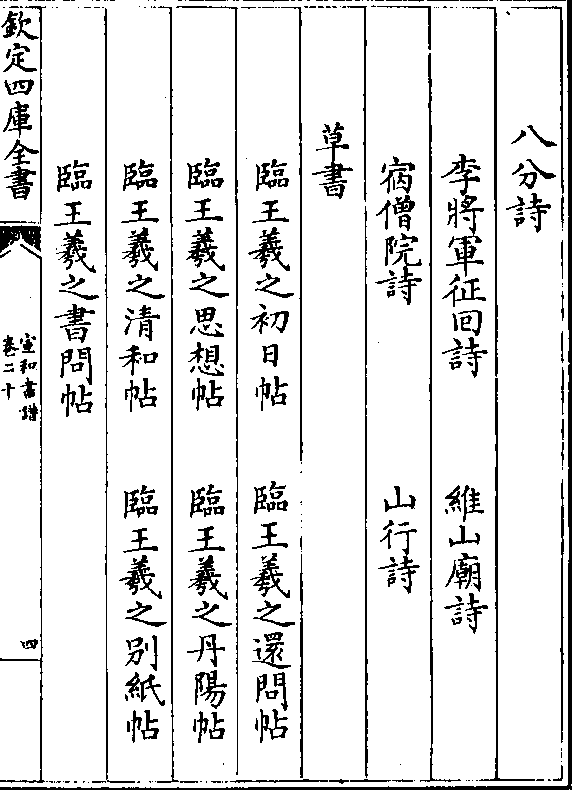 八分詩
李將軍征回詩　維山廟詩
宿僧院詩　山行詩
草書
臨王羲之初日帖　臨王羲之還問帖
臨王羲之思想帖　臨王羲之丹陽帖
臨王羲之清和帖　臨王羲之別紙帖
臨王羲之書問帖
欽定四庫全書
宣和書譜
卷二十
四